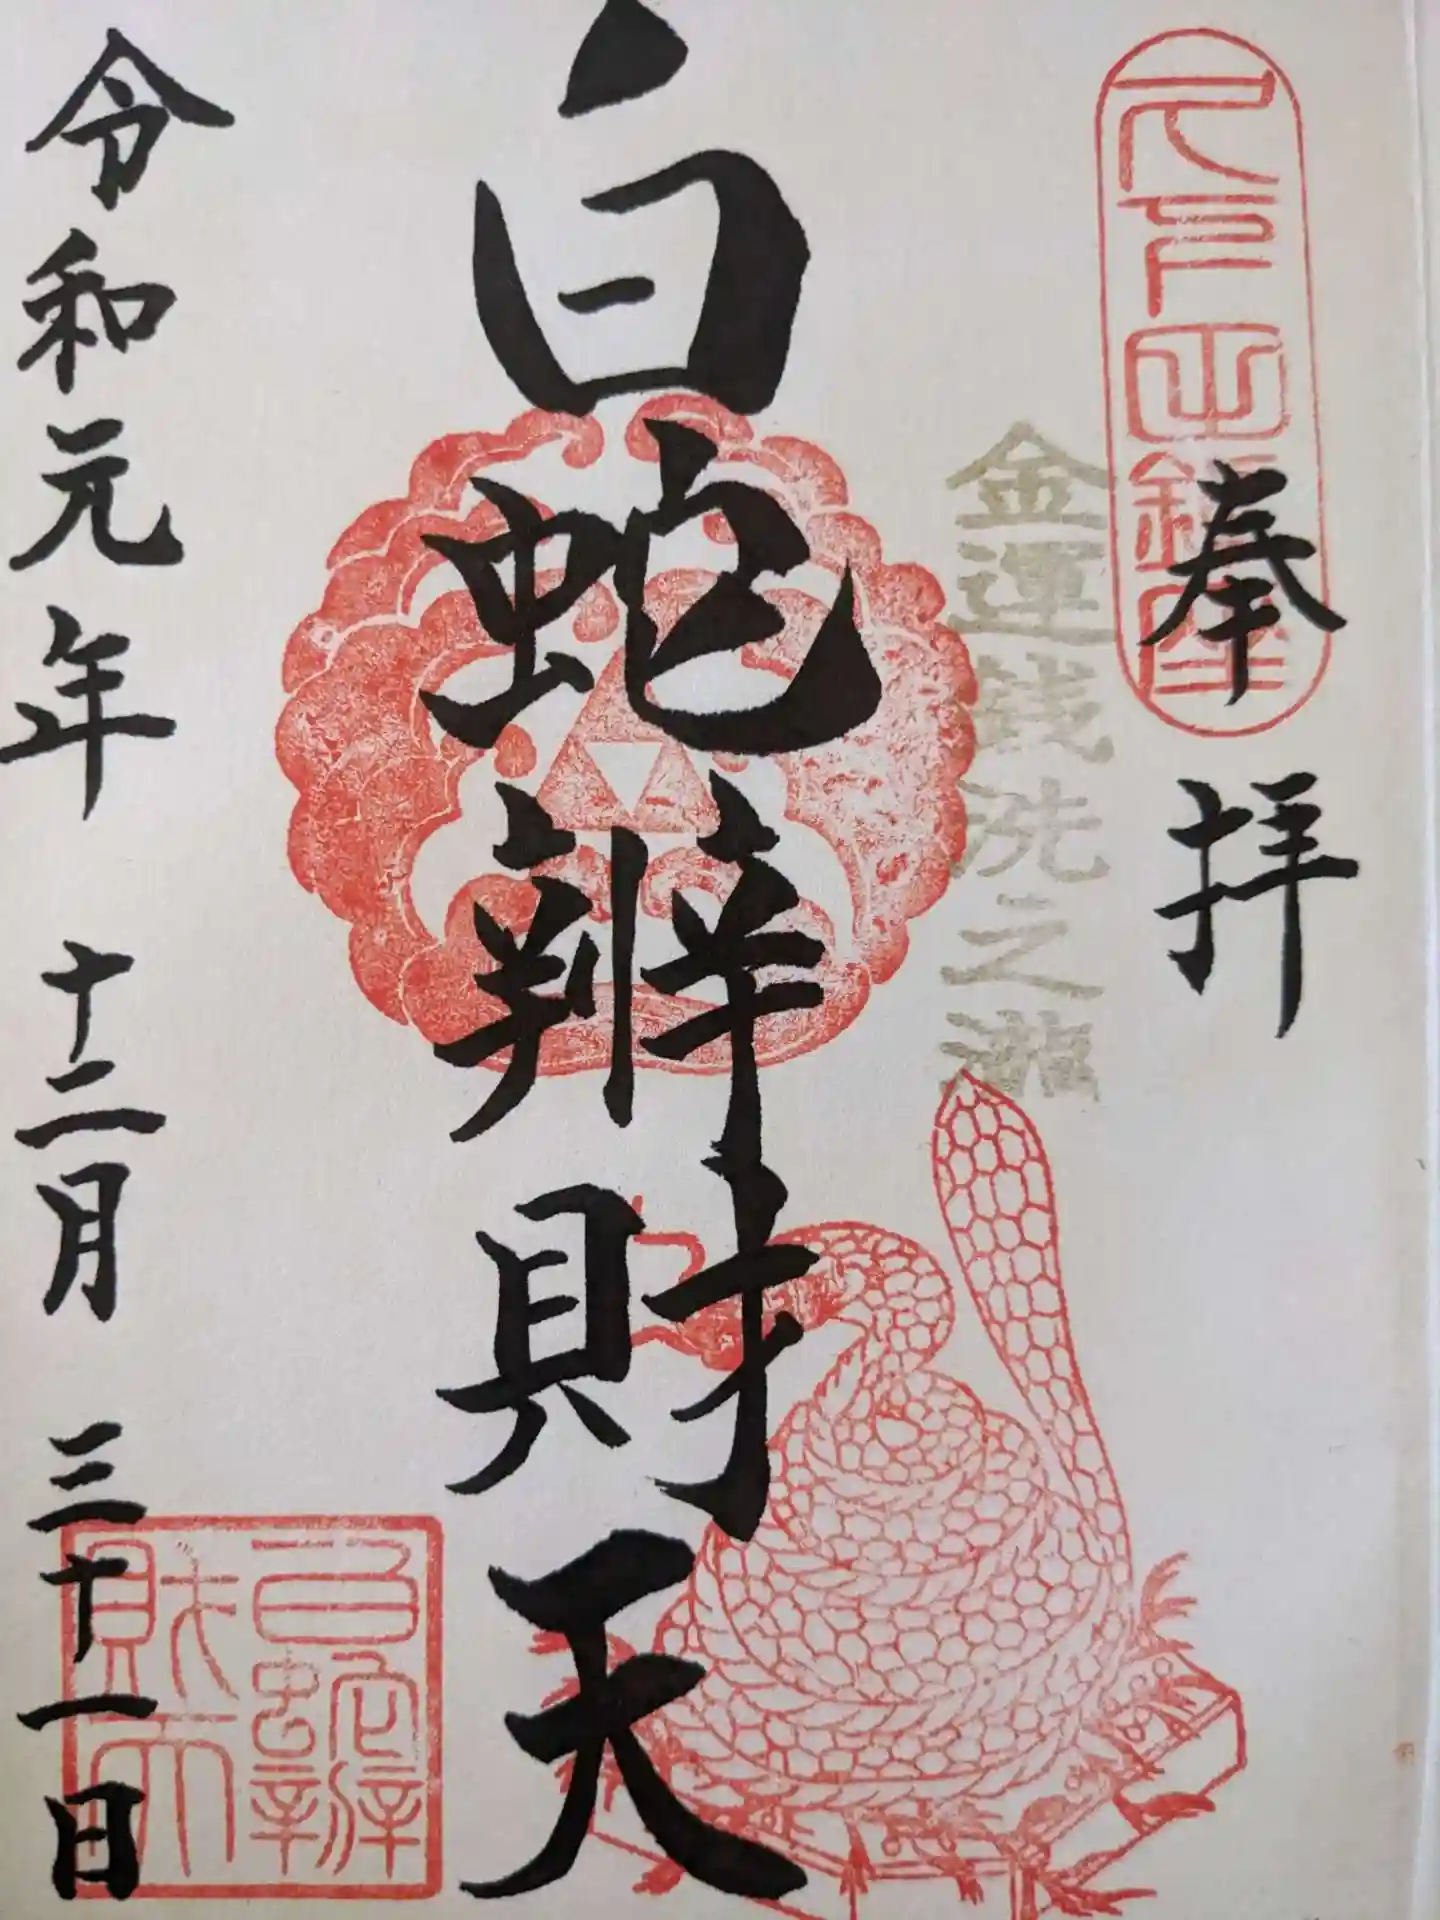 奉拝
金運銭洗之瀧
白蛇辨財天
令和元年 十二月 三十一日
白蛇辨財天